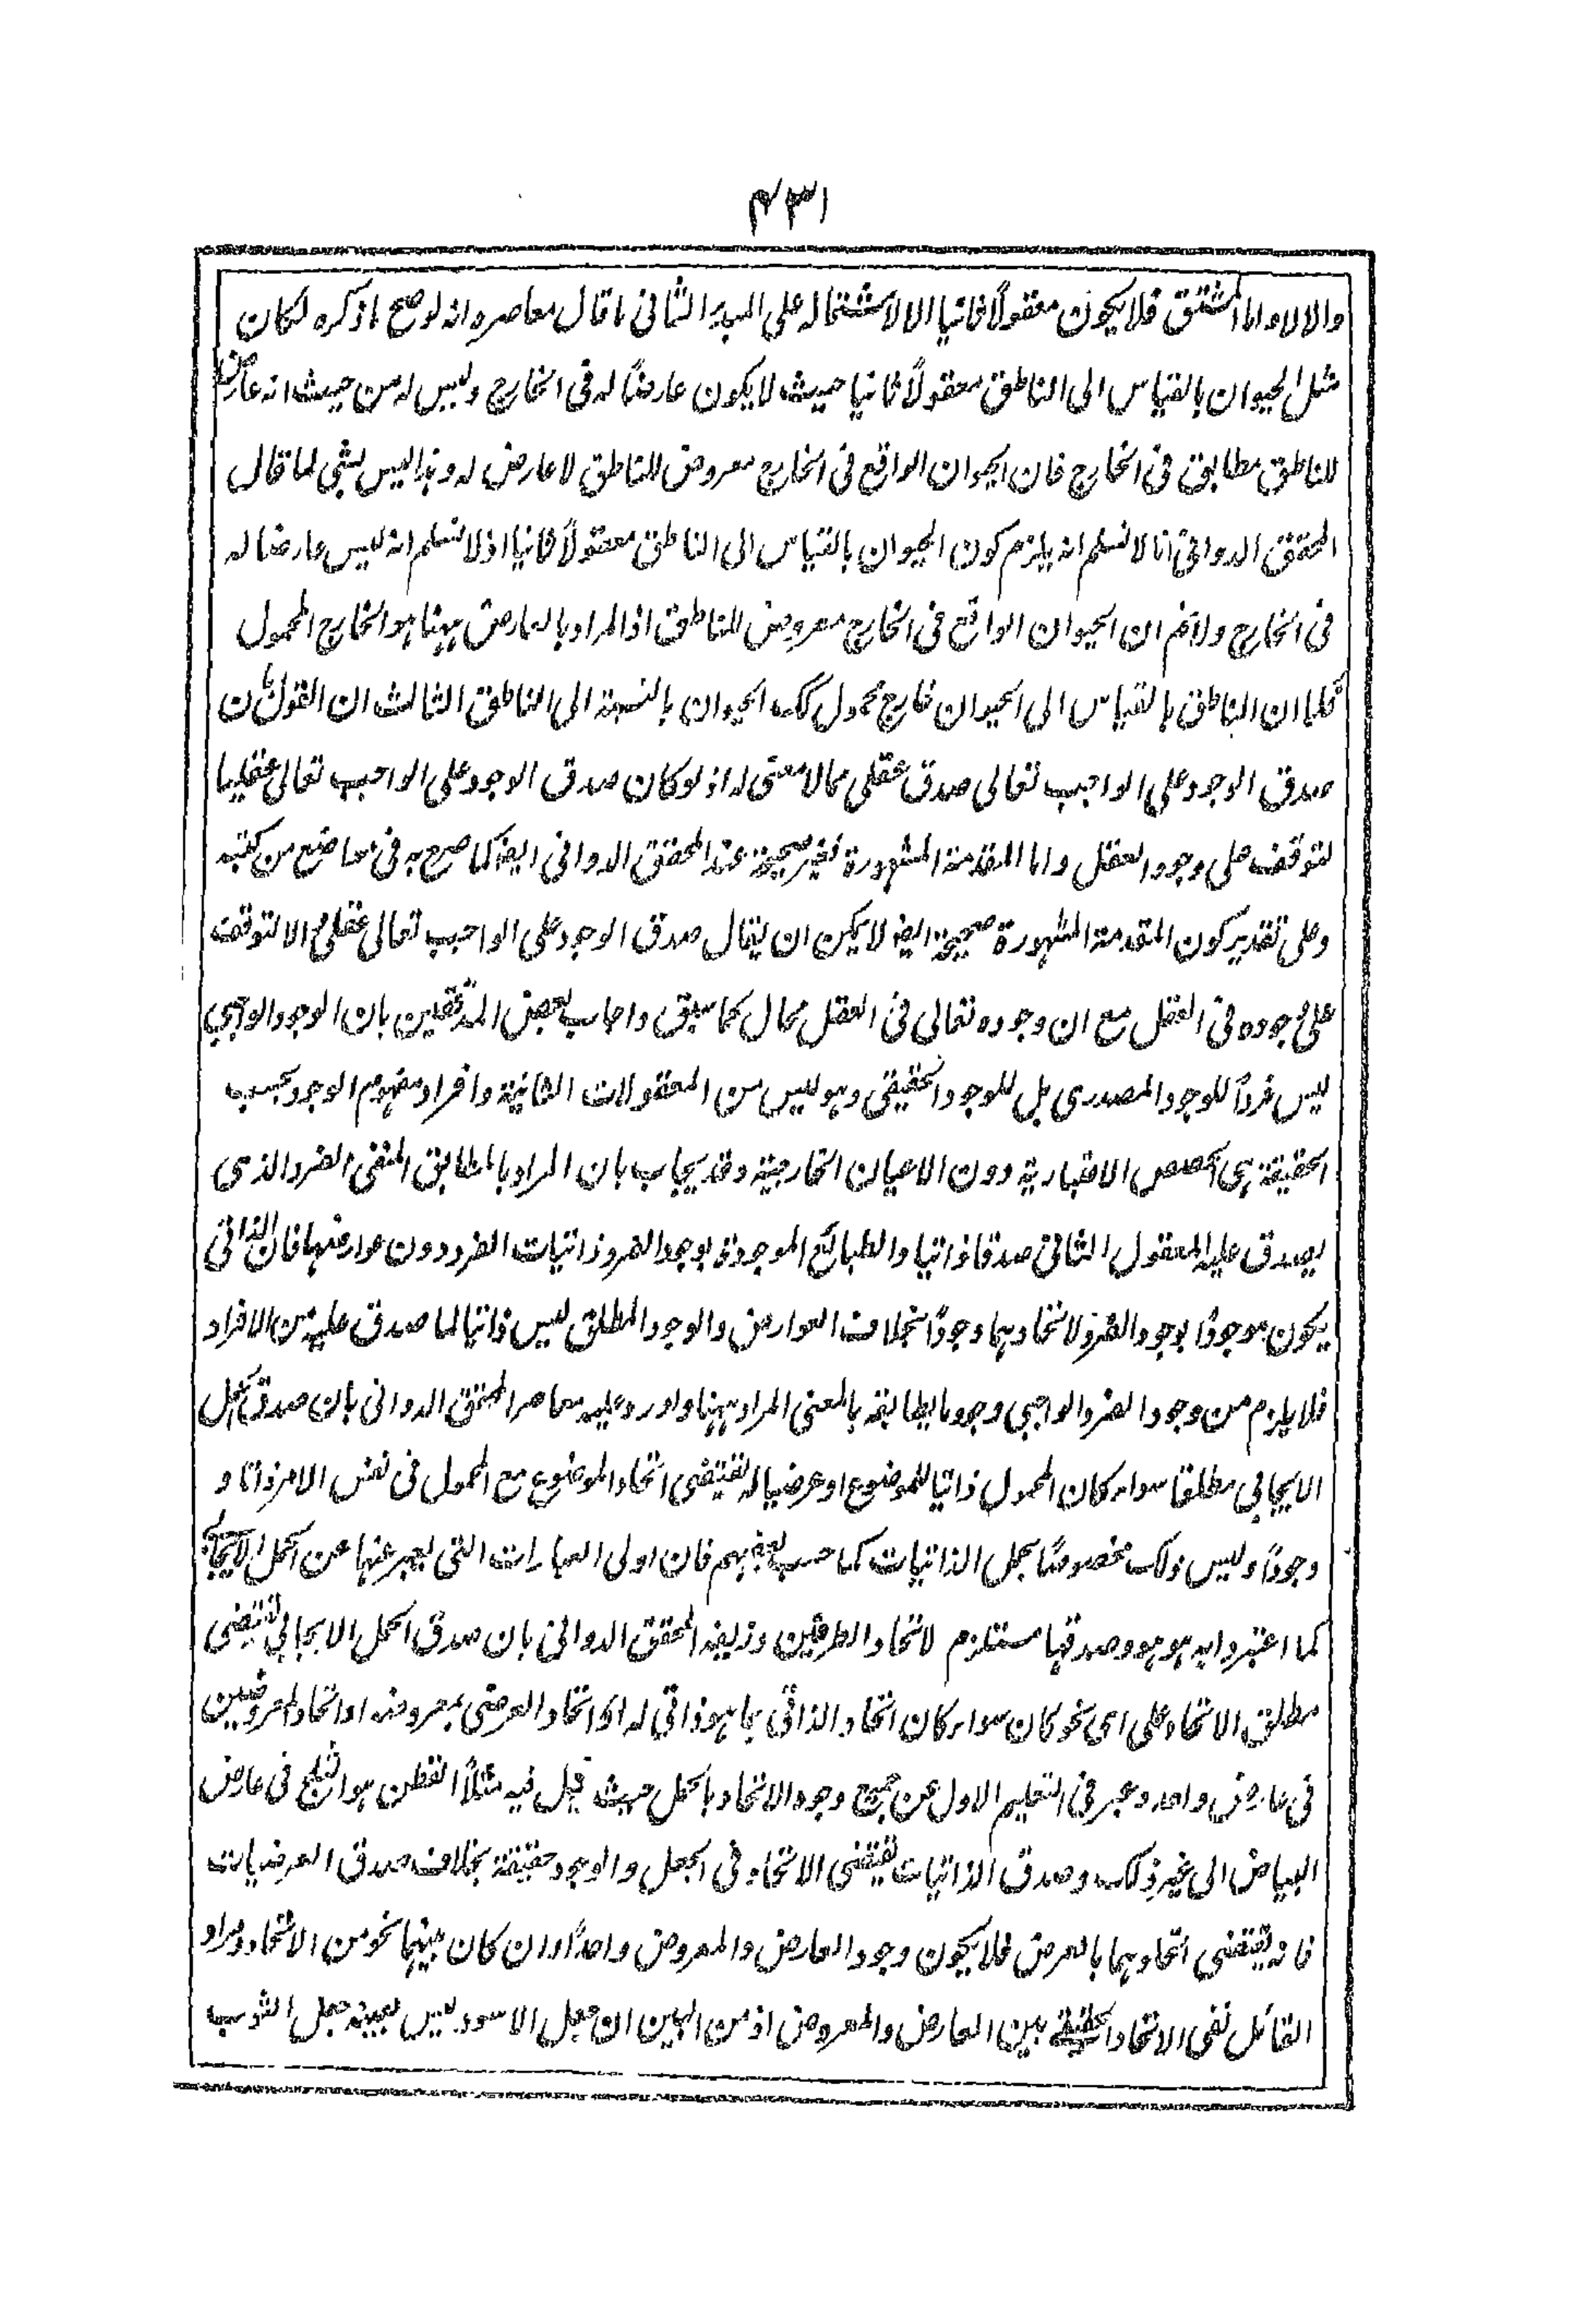 ٤٣١
والا لا واما المشتق فلا يكون معقولاً ثانيا الا لاشتماله على المبدء الثانى ما قال معاصره انه لو صح ما ذكره لكان
مثل الحيوان بالقياس الى الناطق معقولاً ثانيا حيث لا يكون عارضاً له فى الخارج وليس له من حيث انه عارض
للناطق مطابق فى الخارج فان الحيوان الواقع فى الخارج معروض للناطق لا عارض له وهذا ليس بشئ لما قال
المحقق الدوانى انا لا نسلم انه يلزم كون الحيوان بالقياس الى الناطق معقولاً ثانيا اذ لا نسلم انه ليس عارضا له
فى الخارج ولا نم ان الحيوان الواقع فى الخارج معروض للناطق اذ المراد بالعارض ههنا هو الخارج المحمول
فكما ان الناطق بالقياس الى الحيوان خارج محمول كك الحيوان بالنسبة الى الناطق الثالث ان القول بان
صدق الوجود على الواجب تعالى صدق عقلى مما لا معنى له اذ لو كان صدق الوجود على الواجب تعالى عقليا
لتوقف على وجود العقل واما المقدمة المشهورة فغير صحيحة عند المحقق الدوانى ايضا كما صرح به فى مواضع من كتبه
وعلى تقدير كون المقدمة المشهورة صحيحة ايضا لا يمكن ان يقال صدق الوجود على الواجب تعالى عقلى والا لتوقف
على وجوده فى العقل مع ان وجوده تعالى فى العقل محال كما سبق واجاب بعض المدققين بان الوجود الواجبى
ليس فرداً للوجود المصدرى بل للوجود الحقيقى وهو ليس من المعقولات الثانية وافراد مفهوم الوجود بحسب
الحقيقة هى الحصص الاعتبارية دون الاعيان الخارجية وقد يجاب بان المراد بالمطابق المنفى الفرد الذى
يصدق عليه المعقول الثانى صدقا ذاتيا والطبائع الموجودة بوجود الفرد ذاتيات الفرد دون عوارضها فان الذاتى
يكون موجوداً بوجود الفرد لاتحادهما وجوداً بخلاف العوارض والوجود المطلق ليس ذاتيا لما صدق عليه من الافراد
فلا يلزم من وجود الفرد الواجبى وجود ما يطابقه بالمعنى المراد ههنا واورد عليه معاصر المحقق الدوانى بان صدق الحمل
الايجابى مطلقا سواء كان المحمول ذاتيا للموضوع او عرضيا له يقتضى اتحاد الموضوع مع المحمول فى نفس الامر ذاتا و
وجوداً وليس ذلك مخصوصاً بحمل الذاتيات كما حسب بعضهم فان اولى العبارات التى يعبر عنها عن الحمل الايجابى
كما اعتبروا به هو هو وصدقها مستلزم لاتحاد الطرفين وزيفه المحقق الدوانى بان صدق الحمل الايجابى يقتضى
مطلق الاتحاد على اى نحو كان سواء كان اتحاد الذاتى بما هو ذاتى له او اتحاد العرضى بمعروضه او اتحاد المعروضين
فى عارض واحد وعبر فى التعليم الاول عن جميع وجوه الاتحاد بالحمل حيث قيل فيه مثلاً القطن هو الثلج فى عارض
البياض الى غير ذلك وصدق الذاتيات يقتضى الاتحاد فى الجعل والوجود حقيقة بخلاف صدق العرضيات
فانه يقتضى اتحادهما بالعرض فلا يكون وجود العارض والمعروض واحداً وان كان بينهما نحو من الاتحاد ومراد
القائل نفى الاتحاد الحقيقى بين العارض والمعروض اذ من البين ان جعل الاسود ليس بعينه جعل الثوب